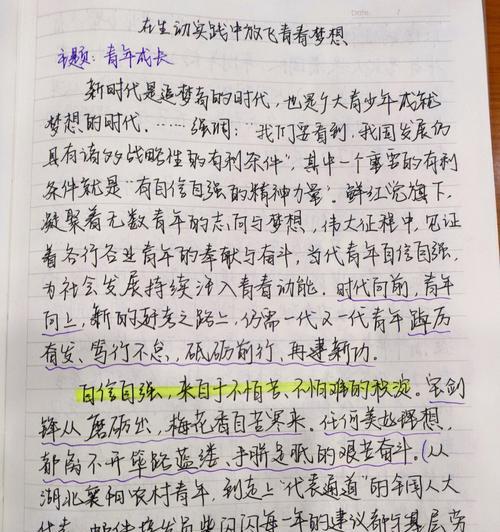 在生动实践中放飞青春梦想
主题：青年成长
新时代是追梦者的时代，也是广大青少年成就
梦想的时代.……强调："我们要看到，我国发展仍
具有诸多战略性的有利条件"，其中一个重要的有利
条件就是"有自信自强的精神力量"。鲜红党旗下，
凝聚着无数青年的志向与梦想，伟大征程中，见证
着各行各业青年的奉献与奋斗，当代青年自信自强，
为社会发展持续注入青春动能。时代向前，青年
向上，新的赶考之路上，仍需一代又一代青年踔厉
奋发、笃行不怠，砥砺前行、再建新功.
自信自强，来自于不怕苦、不怕难的积淀。宝剑
锋从磨砺出，梅花香自苦寒来。任何美好理想，
都离不开筚路蓝缕、手胼足胝的艰苦奋斗。(从
湖北襄阳农村青年，到走上"代表通道"的全国人大
代表，邮件
每一年的建议都与基层劳